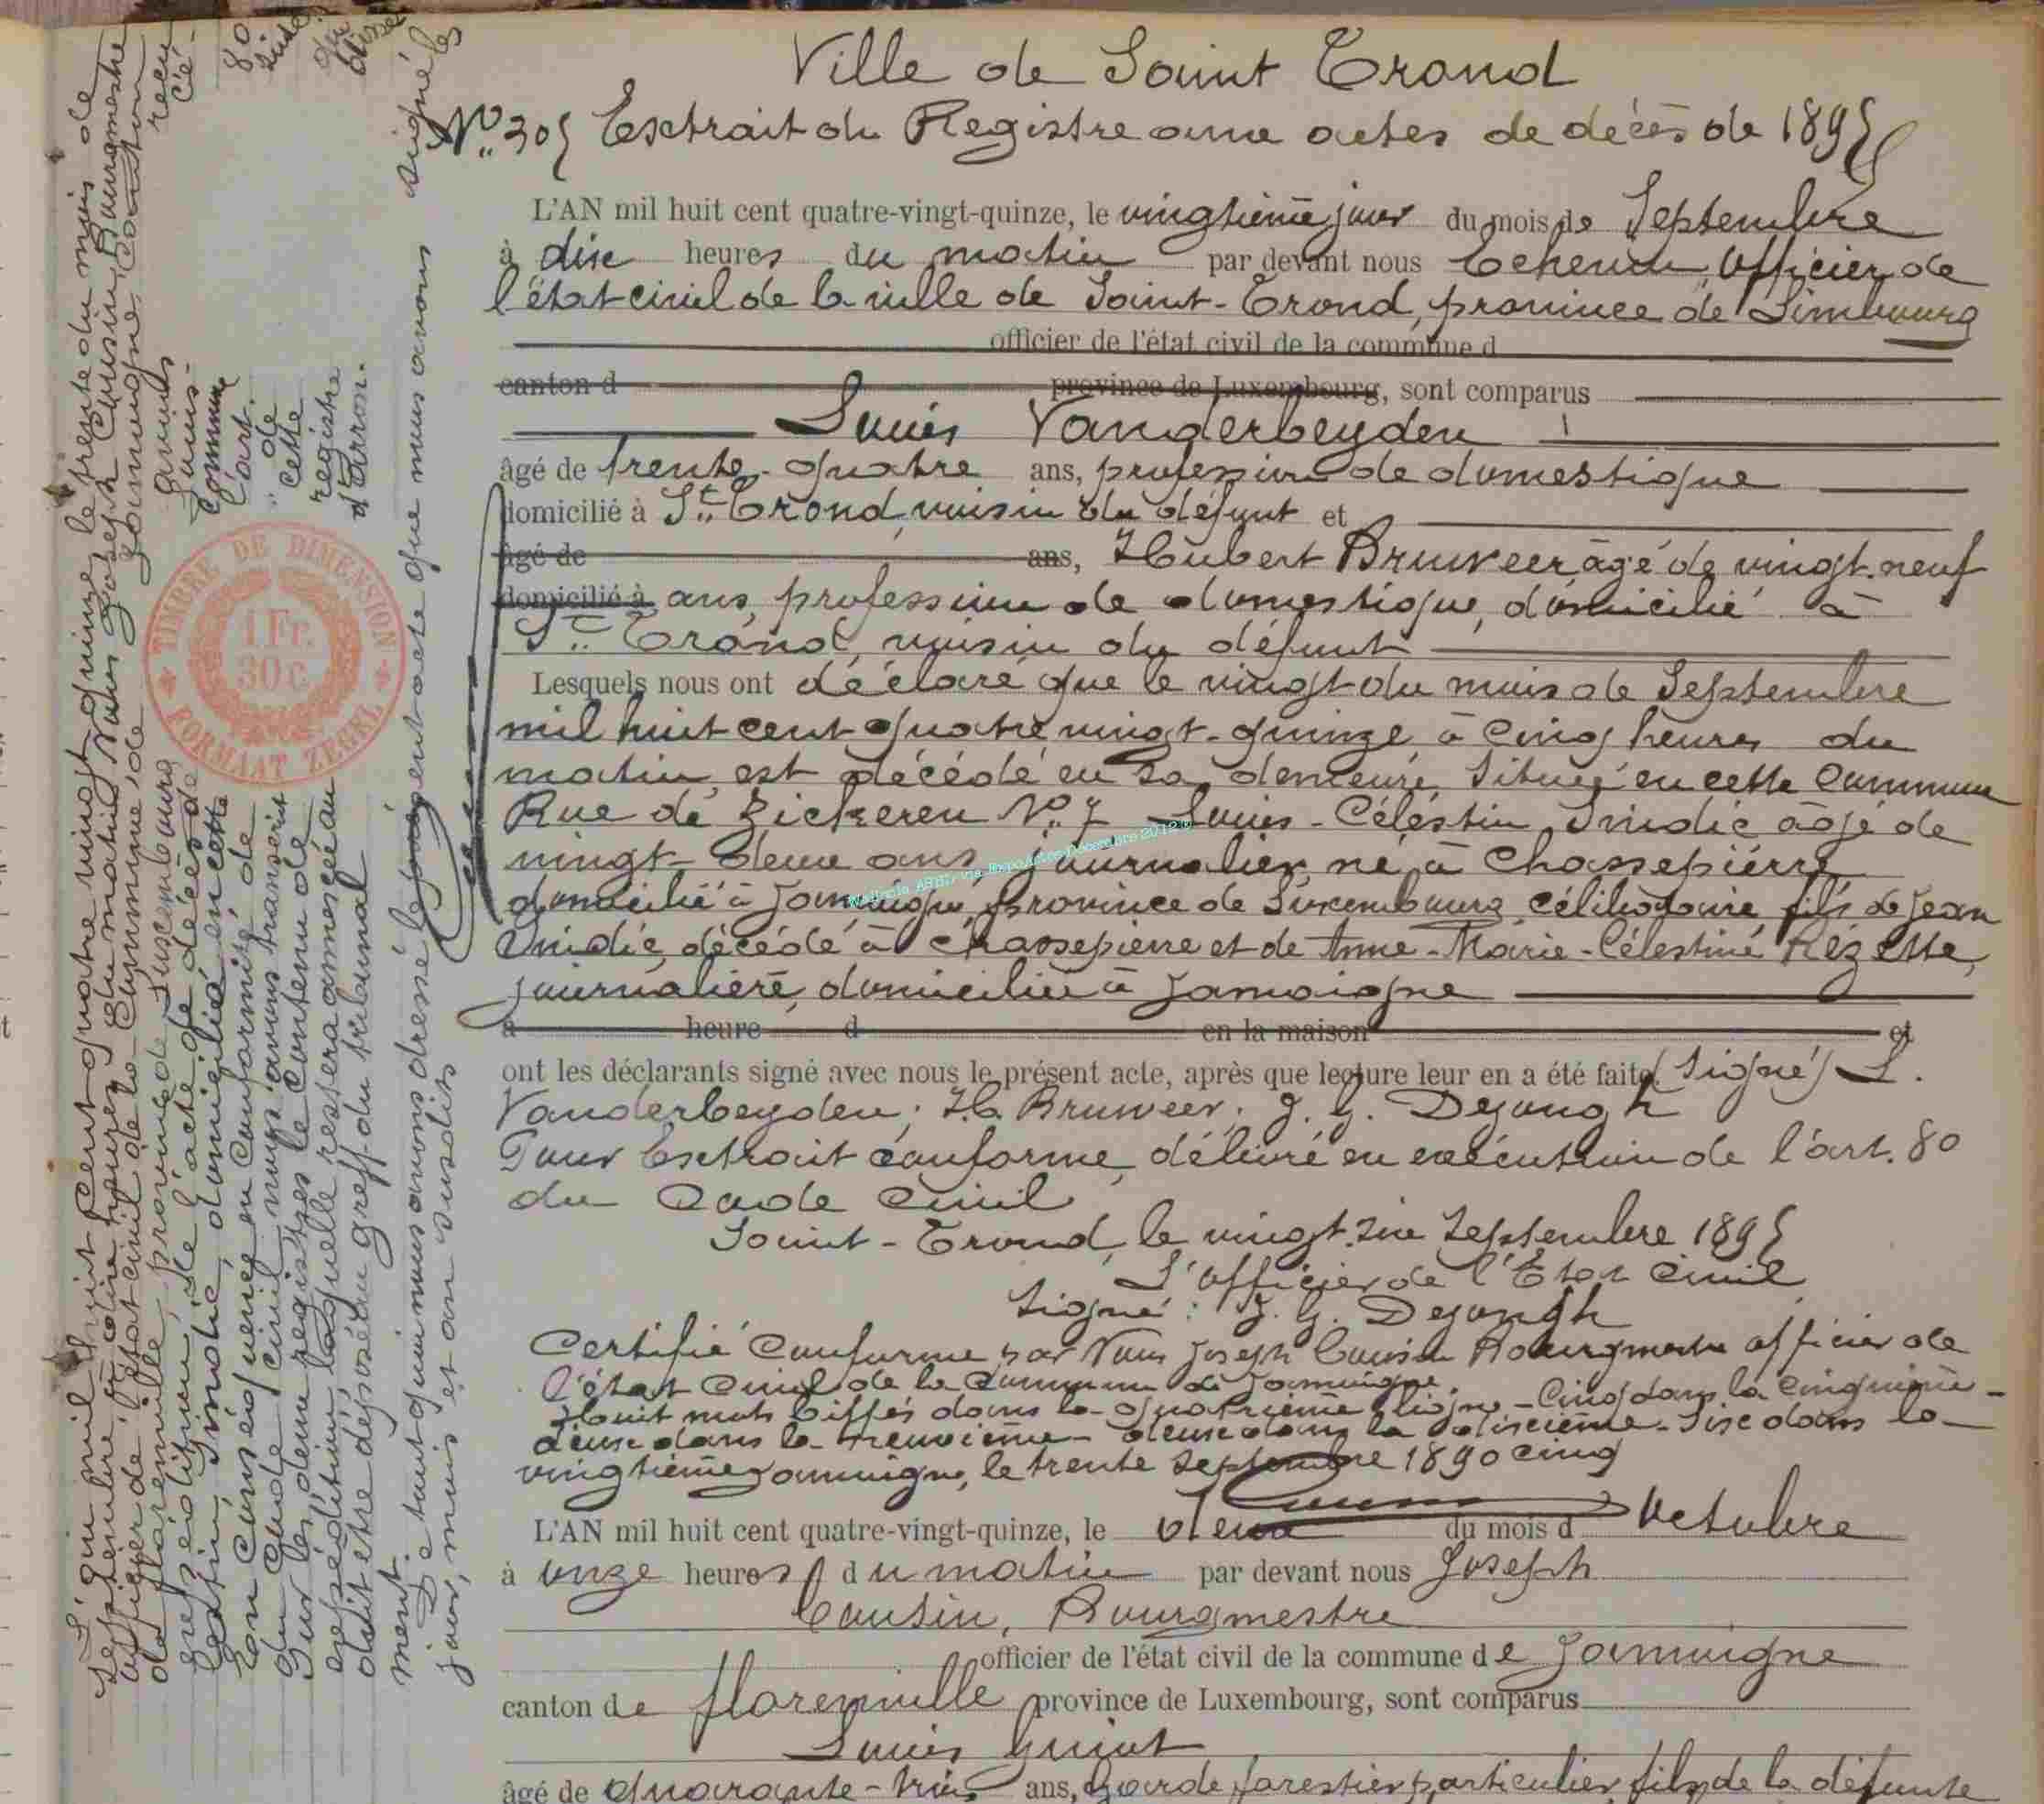 Ville de Saint Trond
No. 305 Extrait du Registre aux actes de décès de 1895
L'AN mil huit cent quatre-vingt-quinze, le vingtième jour du mois de Septembre
à dix heures du matin par devant nous Echevin, officier de
l'état civil de la ville de Saint-Trond, province de Limbourg
officier de l'état civil de la commune d
canton d province de Luxembourg, sont comparus
Louis Vanderbeyden
âgé de trente-quatre ans, profession de domestique
domicilié à St. Trond, voisin du défunt et
âgé de ans, Hubert Bruweer âgé de vingt-neuf
domicilié à ans, profession de domestique, domicilié à
St. Trond, voisin du défunt
Lesquels nous ont déclaré que le vingt du mois de Septembre
mil huit cent quatre vingt-quinze à cinq heures du
matin, est décédé en sa demeure, située en cette commune
Rue de Zickeren No. 7 Louis-Célestin Sindic âgé de
vingt-deux ans, journalier, né à Chassepierre
domicilié à Jamoigne, province de Luxembourg, célibataire fils de Jean
Sindic, décédé à Chassepierre et de Anne-Marie-Célestine Rézette,
journalière, domiciliée à Jamoigne
à heure d en la maison et
ont les déclarants signé avec nous le présent acte, après que lecture leur en a été faite. (Signé) L.
Vanderbeyden; H. Bruweer; J. G. Dejongh
Pour Extrait conforme, délivré en exécution de l'art. 80
du Code Civil
Saint-Trond, le vingt-six Septembre 1895
L'officier de l'Etat Civil
Signé: J. G. Dejongh
Certifié conforme par Nous Joseph Cousin Bourgmestre officier de
l'état civil de la commune de Jamoigne.
Huit mots biffés dans la quatrième ligne - Cinq dans la cinquième -
deux dans la neuvième - deux dans la dixième - Six dans la
vingtième Jamoigne, le trente Septembre 1890 cinq
Cousin
L'AN mil huit cent quatre-vingt-quinze, le deux du mois d Octobre
à onze heures du matin par devant nous Joseph
Cousin, Bourgmestre
officier de l'état civil de la commune de Jamoigne
canton de Florenville province de Luxembourg, sont comparus
Louis Guiot
âgé de quarante-trois ans, Garde forestier particulier, fils de la défunte
L'an mil huit cent quatre vingt-quinze le trente du mois de
Septembre à onze heures du matin Nous Joseph Cousin, Bourgmestre
officier de l'état civil de la Commune de Jamoigne, Canton
de Florenville, province de Luxembourg avons reçu
expédition de l'acte de décès de Louis-Cé-
lestin Sindic, domicilié en cette Commune
En conséquence en conformité de l'art. 80
du Code civil, nous avons transcrit
Sur les deux registres le contenu de cette
expédition laquelle restera annexée au registre
doit être déposé au greffe du tribunal d'Arron.
ment.
De tout quoi nous avons dressé le présent acte que nous avons signé les
jour, mois et an susdits
TIMBRE DE DIMENSION
1 Fr.
30 C.
FORMAAT ZEGEL